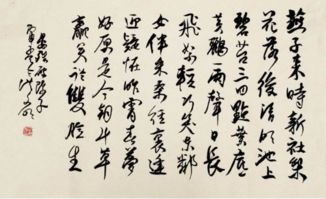 燕子来時新社梨
花落後清明池上
碧苔三四點葉底
黄鸝一兩聲日長
飛絮輕巧笑東鄰
女伴采桑徑裏逢
迎疑怪昨宵春夢
好原是今朝鬥草
贏笑從雙臉生
晏殊破陣子